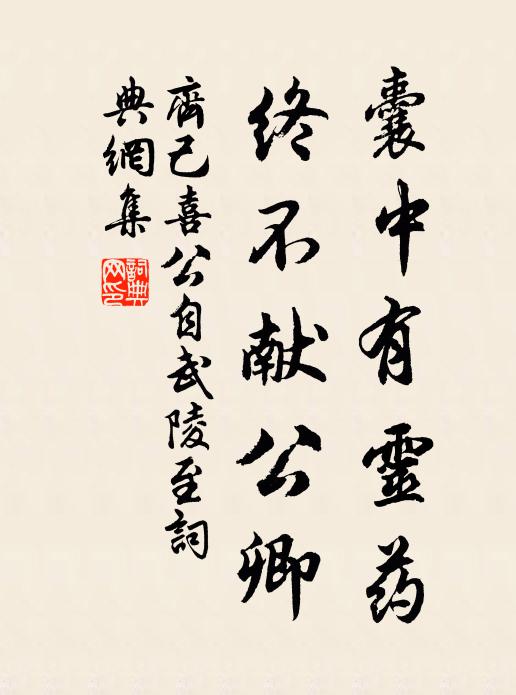 囊中有靈药
终不献公卿
齊己喜公自武陵至詞
典網集
詞典网印